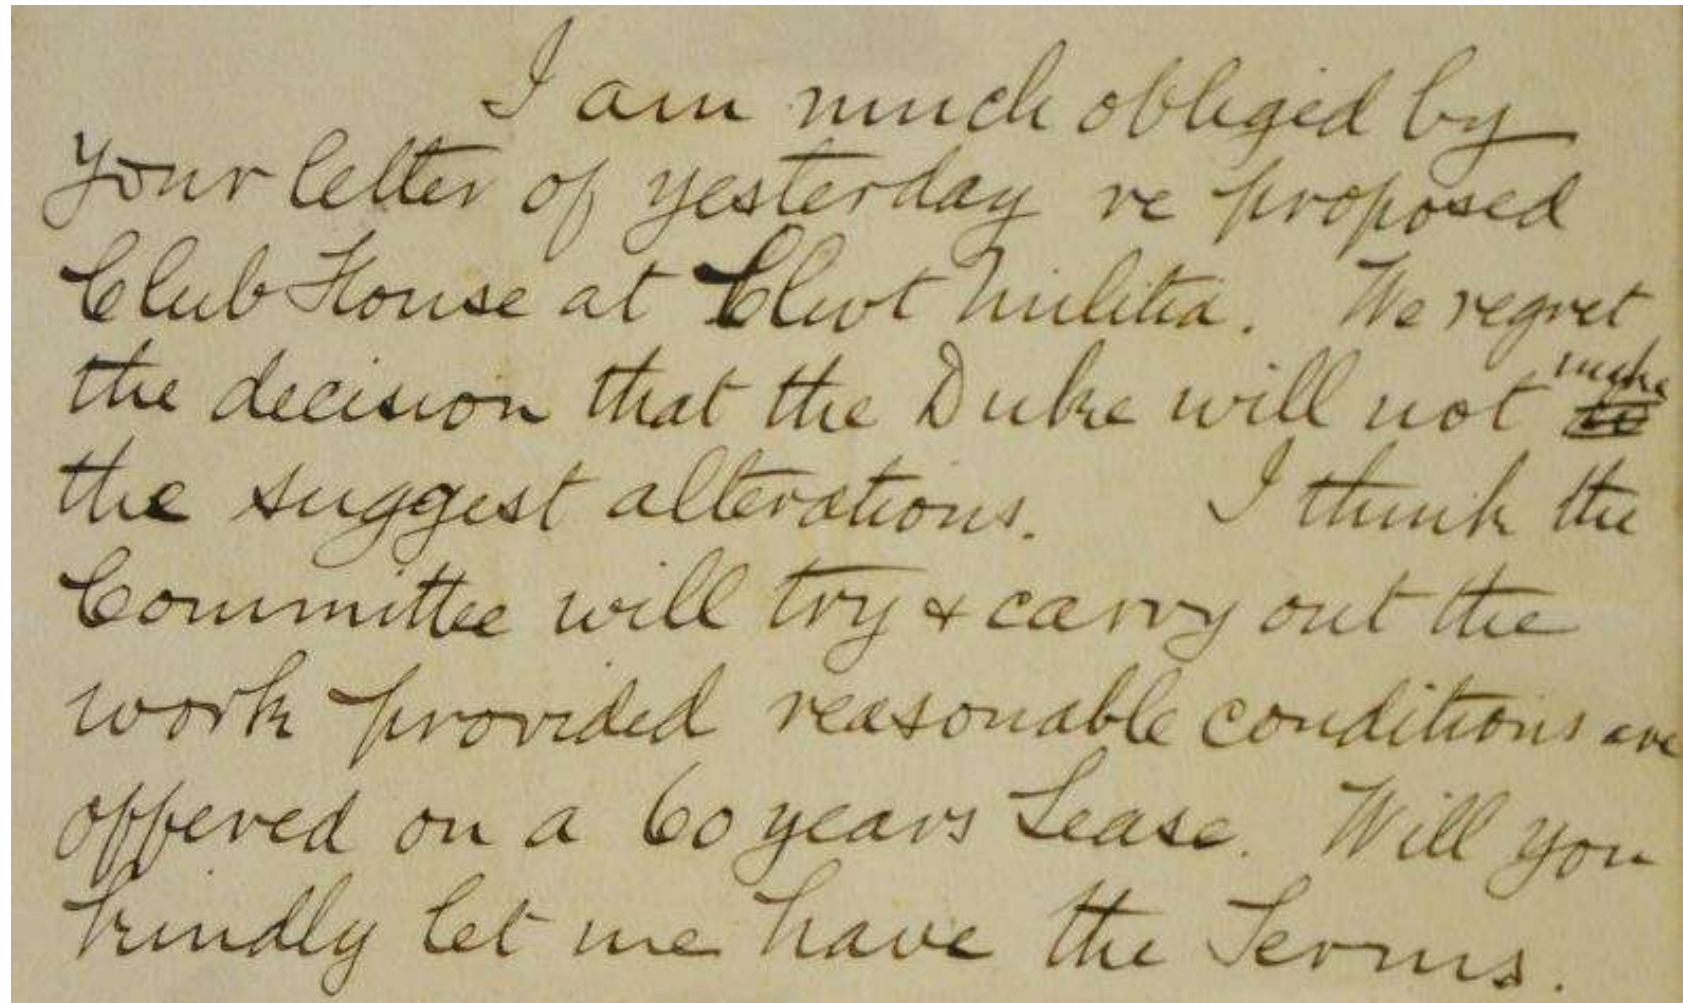 I am much obliged by
your letter of yesterday re proposed
Club House at Clwt Militia. We regret
the decision that the Duke will not make
the suggest alterations. I think the
Committee will try & carry out the
work provided reasonable conditions are
offered on a 60 years Lease. Will you
kindly let me have the Terms.